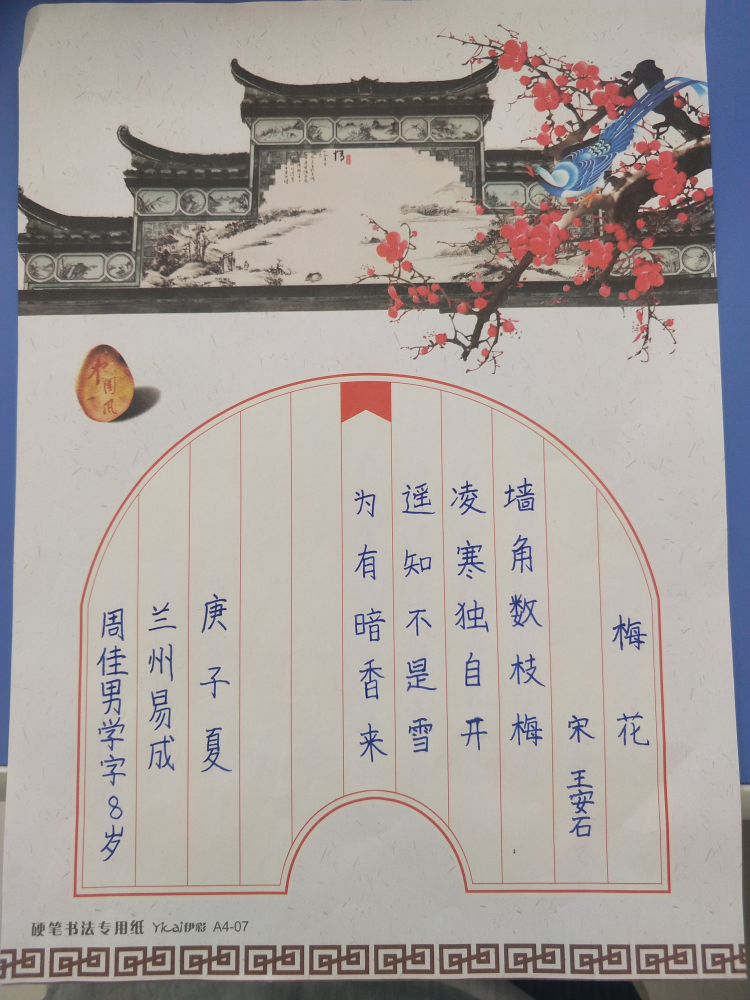 中国风
梅花
宋 王安石
墙角数枝梅
凌寒独自开
遥知不是雪
为有暗香来
庚子夏
兰州易成
周佳男学字8岁
硬笔书法专用纸 Yicai伊彩 A4-07